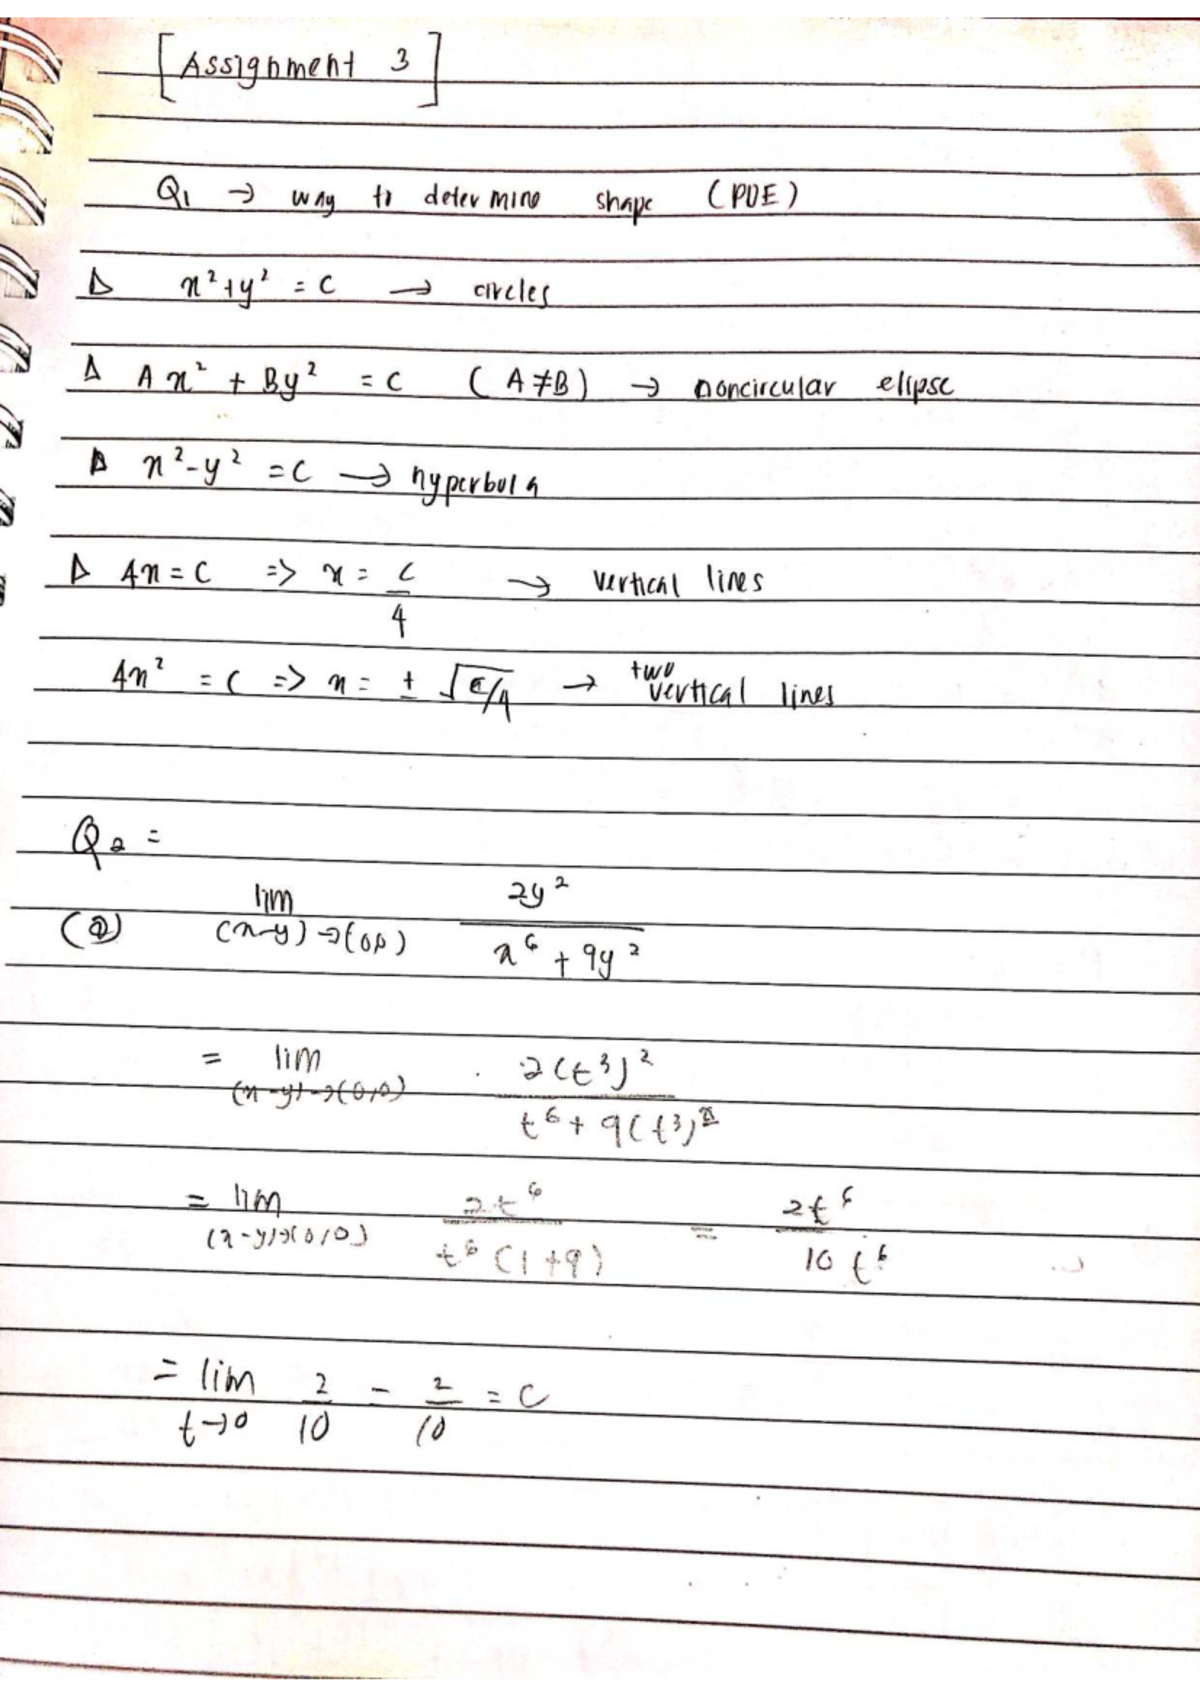 [Assignment 3]
Q1 → way to determine shape (PDE)
△ x²+y² = C → circles
△ Ax² + By² = C (A≠B) → noncircular elipse
△ x²-y² = C → hyperbola
△ 4x = C => x = C/4 → vertical lines
4x² = C => x = ± √C/4 → two vertical lines
Q2 =
(a) lim (x-y)→(0,0) 2y² / x⁶ + 9y²
= lim (x-y)→(0,0) 2(t³)² / t⁶ + 9(t³)²
= lim (x-y)→(0,0) 2t⁶ / t⁶(1+9) = 2t⁶ / 10t⁶
= lim t→0 2/10 - 2/10 = C